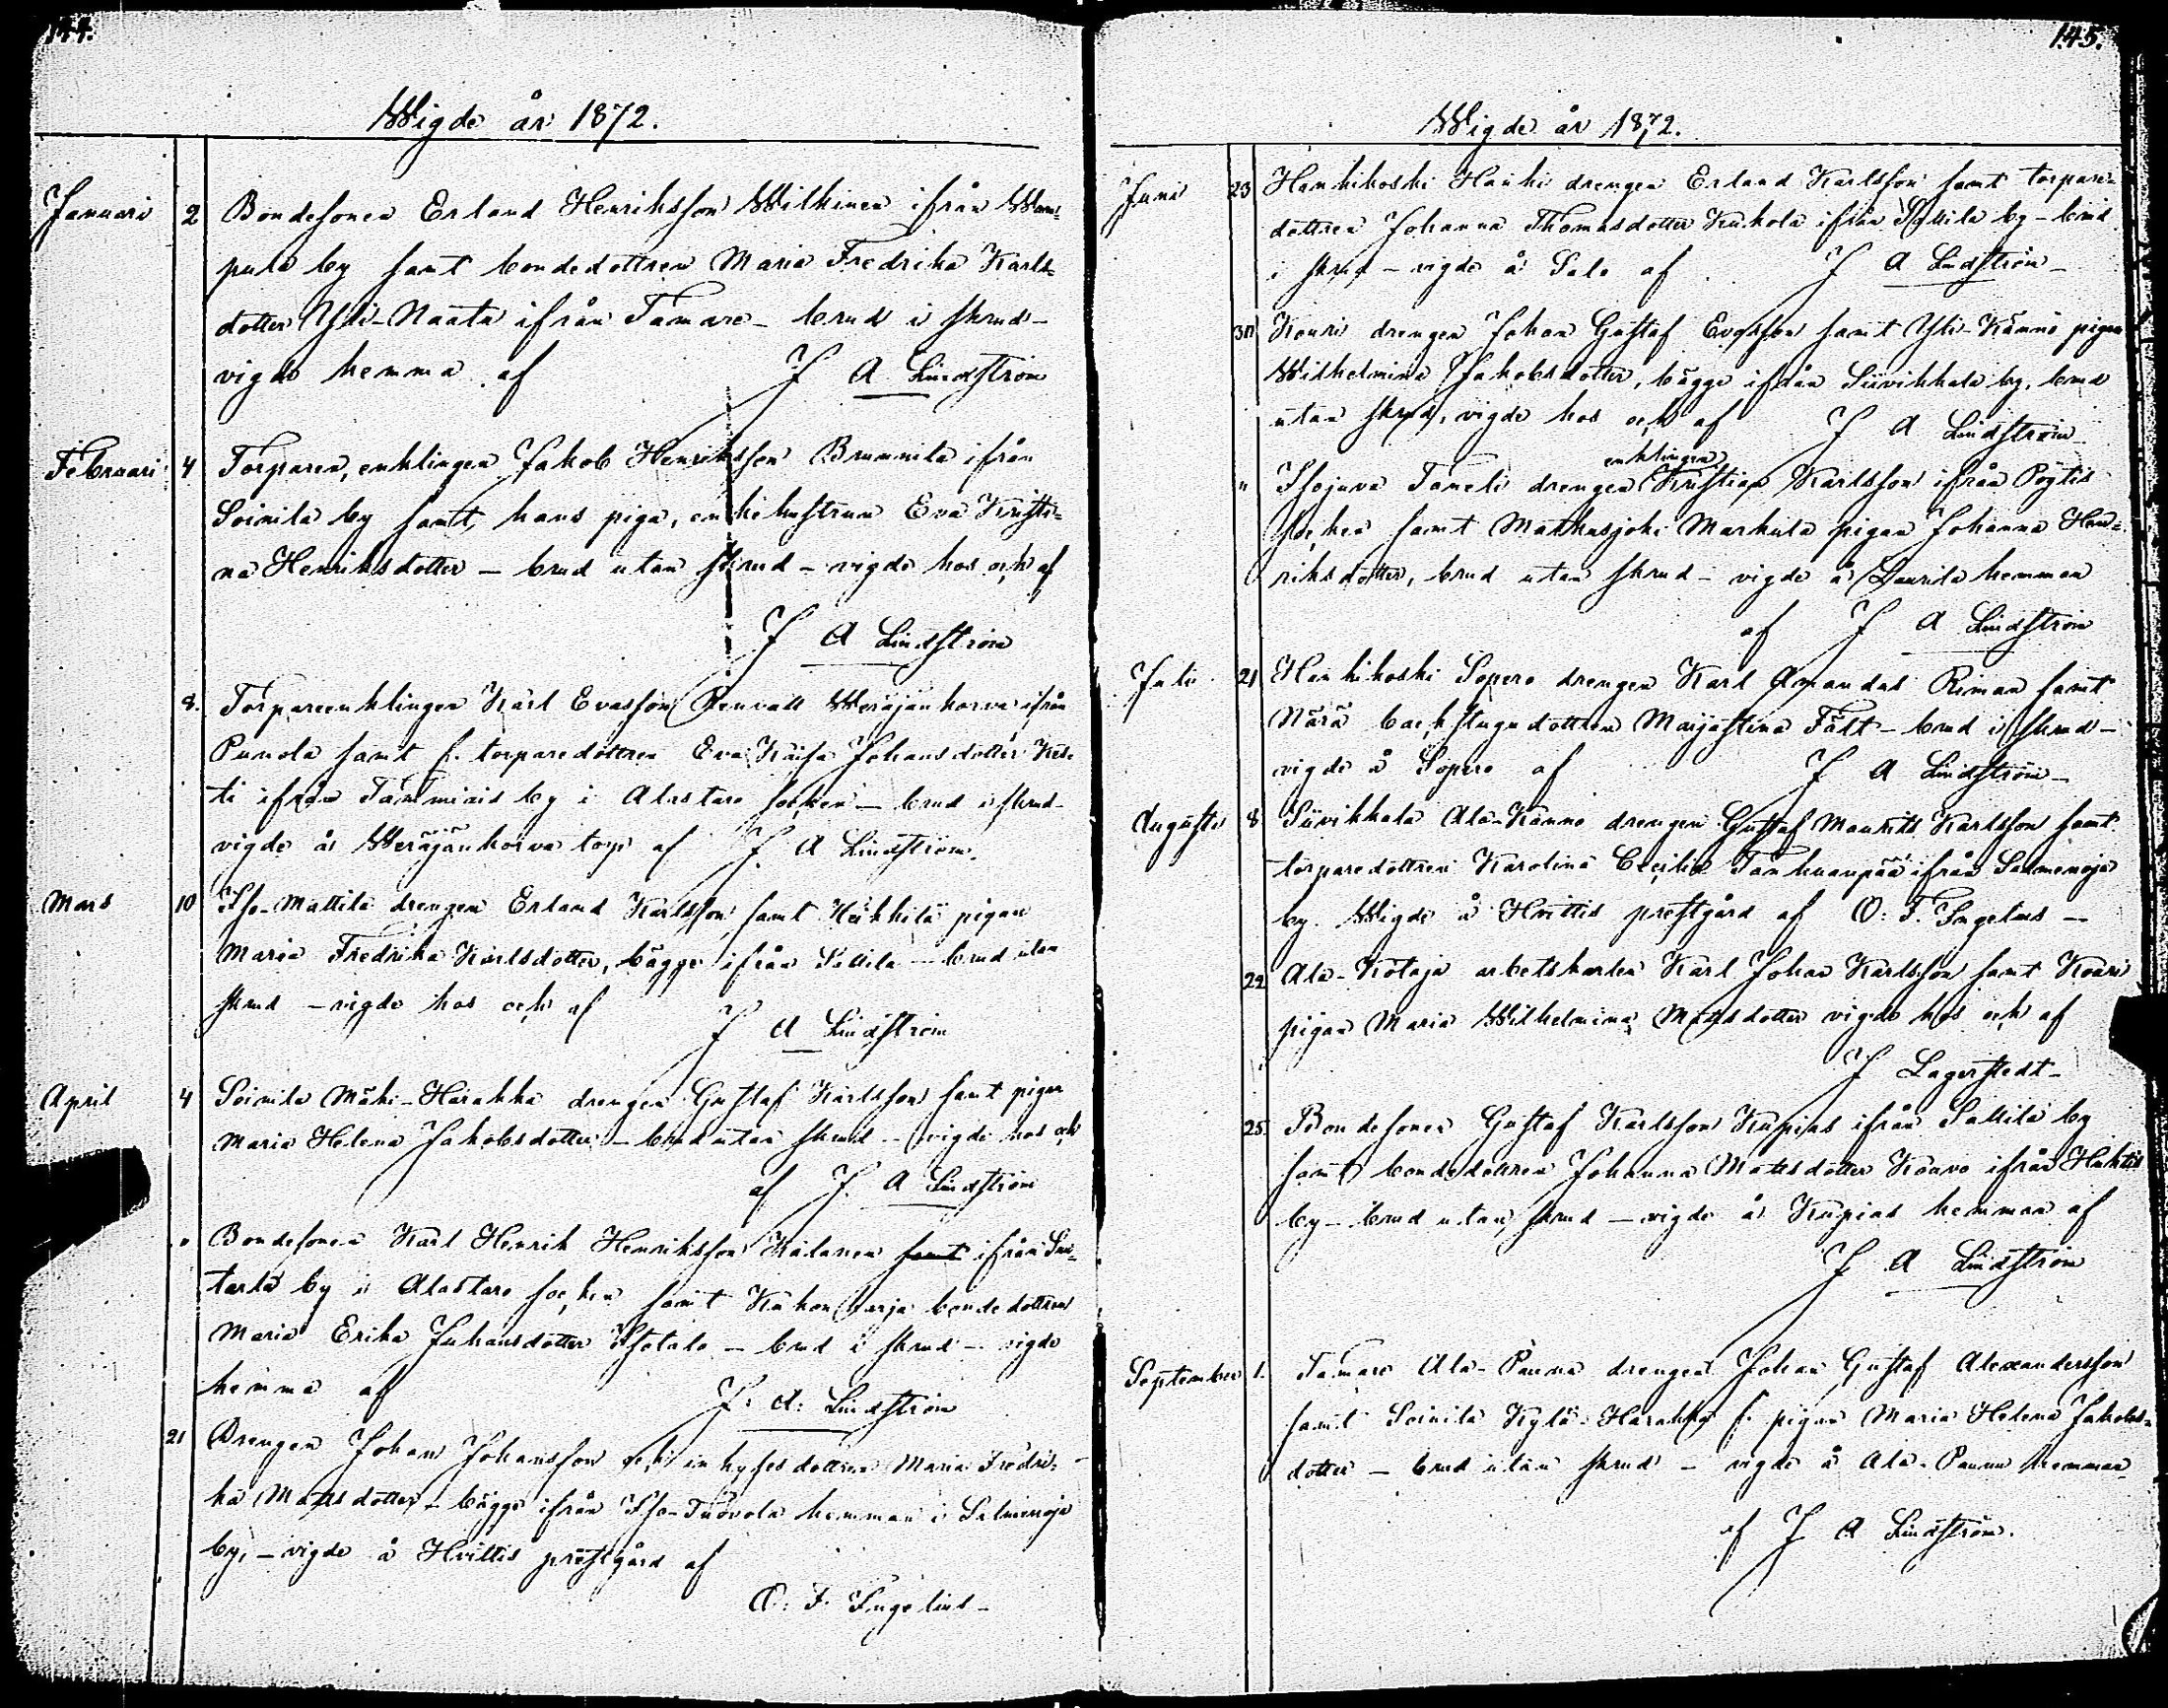 144.
Wigde år 1872.
Januari 2 Bondesonen Erland Henriksson Wilkinen ifrån Wam-
pula by samt bondedottren Maria Fredrika Karls-
dotter Yli-Naata ifrån Tamare - brud i skrud -
vigde hemma af J A Lindström
Februari 4 Torparen, enklingen Jakob Henriksson Brunnila ifrån
Soinila by samt hans piga, enkehustrun Eva Kristi-
na Henriksdotter - brud utan skrud - vigde hos och af
J A Lindström
8. Torpareenklingen Karl Evasson Renvall Weräjänkorva ifrån
Punola samt f. torparedottren Eva Kaisa Johansdotter
ti ifrån Tamminis by i Alastaro socken - brud i skrud -
vigde å Weräjänkorva torp af J. A Lindström.
Mars 10 Iso-Mattila drengen Erland Karlsson samt Heikkilä pigan
Maria Fredrika Karlsdotter, bägge ifrån Sallila - brud utan
skrud - vigde hos och af J A Lindström
April 4 Soinila Mäki-Harakka drengen Gustaf Karlsson samt pigan
Maria Helena Jakobsdotter - brud utan skrud - vigde hos och
af J. A Lindström
" Bondesonen Karl Henrik Henriksson Kälanen samt ifrån
tarla by i Alastaro socken samt Kukonharja bondedottren
Maria Erika Juhansdotter Isotalo - brud i skrud - vigde
hemma af J. A. Lindström
21 Drengen Johan Johansson och inhysesdottren Maria Fredri-
ka Mattsdotter - bägge ifrån Iso-Tuovola hemman i Salmenoja
by, - vigde å Hvittis prestgård af
O. F. Ingelius -
145.
Wigde år 1872.
Juni 23 Hankikoski Hanki drengen Erland Karlsson samt torpare-
dottren Johanna Thomasdotter Kukola ifrån Sallila by - brud
i skrud - vigde å Salo af J A Lindström -
30 Kouri drengen Johan Gustaf Evasson samt Yli-Känno pigan
Wilhelmina Jakobsdotter, bägge ifrån Siivikkala by, brud
utan skrud, vigde hos och af J A Lindström
enklingen
" Isojuva Taneli drengen Kristian Karlsson ifrån Pöytis
socken samt Matkusjoki Markula pigan Johanna Hen-
riksdotter, brud utan skrud - vigde å Laurila hemman
af J A Lindström
Juli 21 Hankikoski Sopero drengen Karl Amandus Riman samt
Närä backstugudottren Marjastina Fält - brud i skrud -
vigde å Sopero af J A Lindström -
Augusti 8 Siivikkala Ala-Känno drengen Gustaf Maurits Karlsson samt
torparedottren Karolina Cecilia Tanhuanpää ifrån Salmenoja
by. Wigde å Hvittis prestgård af O. F. Ingelius -
22 Ala-Kötaja arbetskarlen Karl Johan Karlsson samt Kouri
pigan Maria Wilhelmina Mattsdotter vigde hos och af
J Lagerstedt -
25. Bondesonen Gustaf Karlsson Kupias ifrån Sallila by
samt bondedottren Johanna Mattsdotter Kouvo ifrån Huhtis
by - brud utan skrud - vigde å Kupias hemman af
J A Lindström
September 1. Tamare Ala-Panna drengen Johan Gustaf Alexandersson
samt Soinila Kylä-Harakka f. pigan Maria Helena Jakobs-
dotter - brud utan skrud - vigde å Ala-Panna hemman
af J A Lindström.